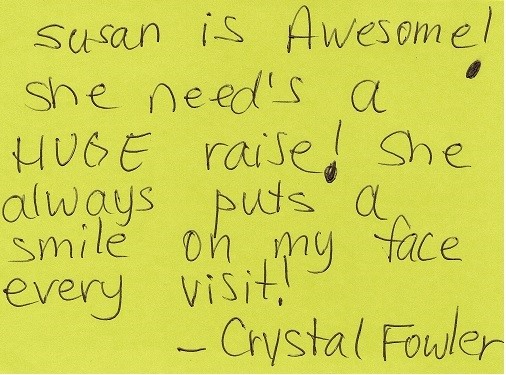 susan is Awesome!
she need's a
HUGE raise! she
always puts a
smile on my face
every visit!
- Crystal Fowler